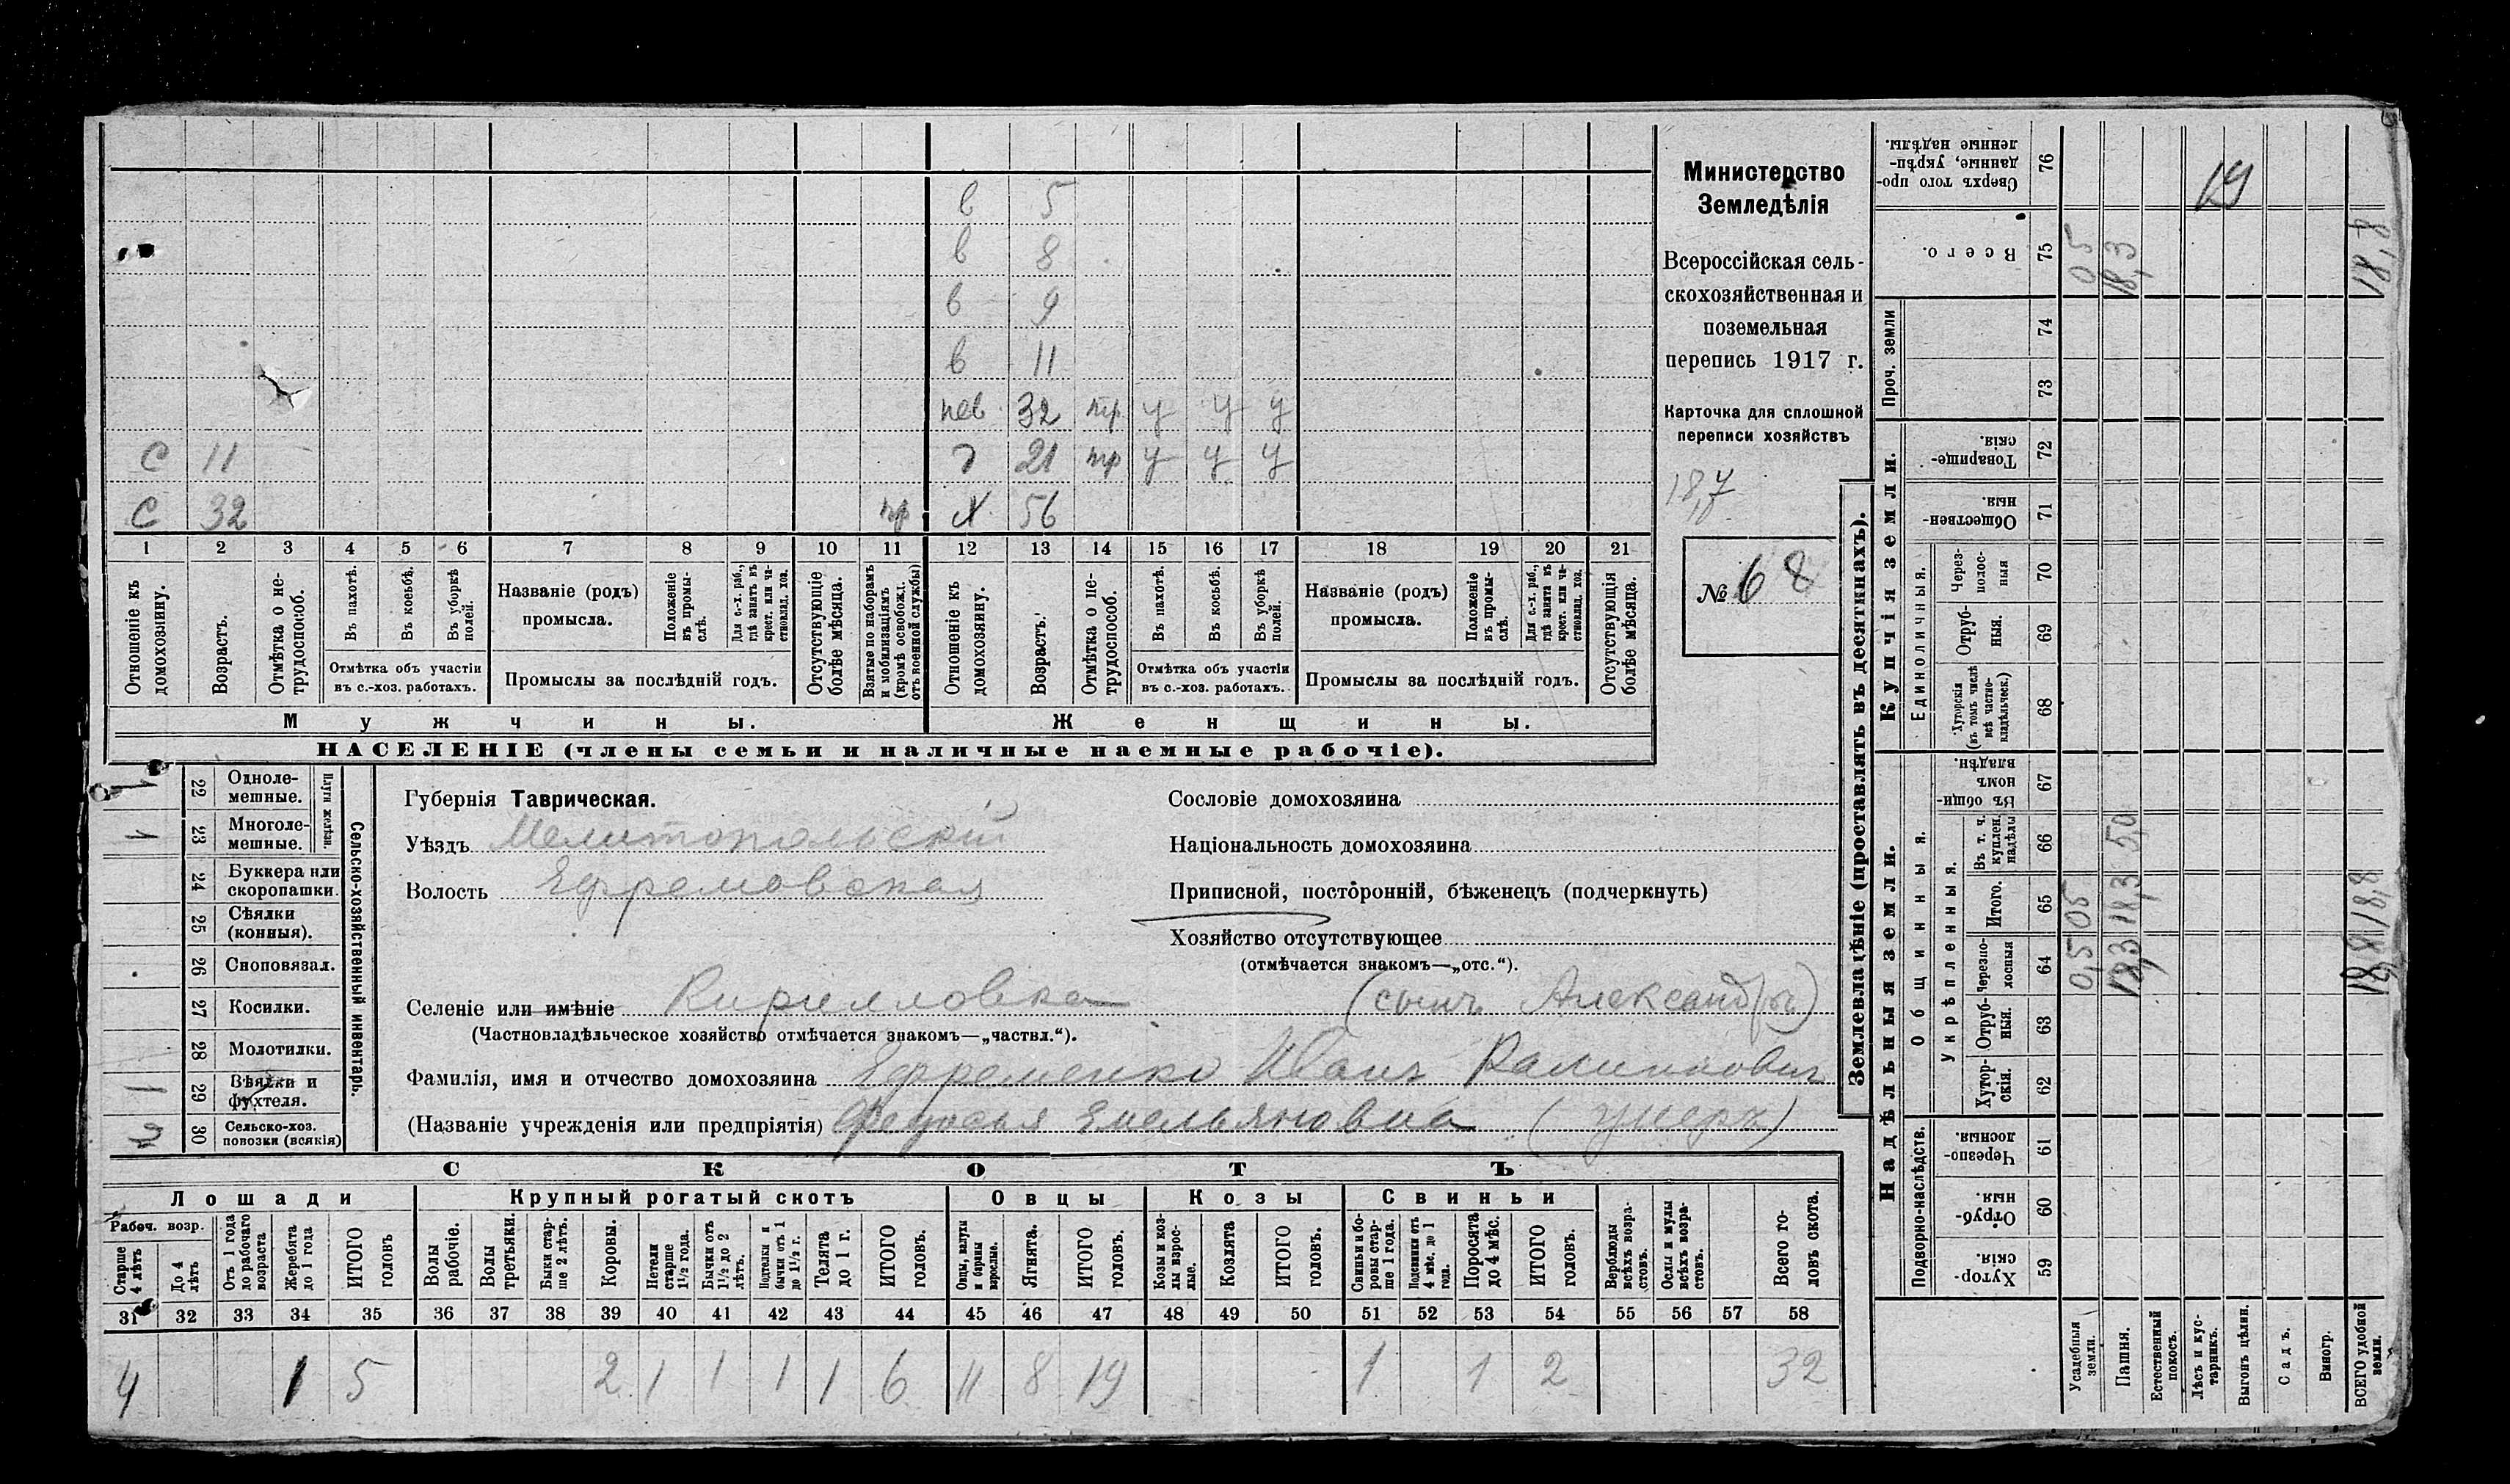 в 5
в 8
в 9
в 11
нев 32 пр у у у
С 11 21 пр у у у
С 32 пр х 56
1 2 3 4 5 6 7 8 9 10 11 12 13 14 15 16 17 18 19 20 21
Отношеніе къ домохозяину.
Возрастъ.
Отмѣтка о не-
трудоспособ.
Въ пахотѣ.
Въ косьбѣ.
Въ уборкѣ полей.
Отмѣтка объ участіи
въ с.-хоз. работахъ.
Названіе (родъ)
промысла.
Положеніе въ промы-
слѣ.
Для с.-х. раб., гдѣ занятъ въ крест. или ча-
стновлад. хоз.
Промыслы за послѣдній годъ.
Отсутствующіе болѣе мѣсяца.
Взятые по наборамъ и мобилизаціямъ (кромѣ освобожд. отъ военной службы)
Отношеніе къ домохозяину.
Возрастъ.
Отмѣтка о не-
трудоспособ.
Въ пахотѣ.
Въ косьбѣ.
Въ уборкѣ полей.
Отмѣтка объ участіи
въ с.-хоз. работахъ.
Названіе (родъ)
промысла.
Положеніе въ промы-
слѣ.
Для с.-х. раб., гдѣ занята въ крест. или ча-
стновлад. хоз.
Промыслы за послѣдній годъ.
Отсутствующія болѣе мѣсяца.
Мужчины.
Женщины.
НАСЕЛЕНІЕ (члены семьи и наличные наемные рабочіе).
Министерство
Земледѣлія
Всероссійская сель-
скохозяйственная и
поземельная
перепись 1917 г.
Карточка для сплошной
переписи хозяйствъ
18,7
№ 68
22 Одноле-
мешные.
23 Многоле-
мешные.
Плуги желѣзн.
24 Буккера или
скоропашки.
25 Сѣялки
(конныя).
26 Сноповязал.
27 Косилки.
28 Молотилки.
29 Вѣялки и
фухтеля.
30 Сельско-хоз.
повозки (всякія)
1
1
1
2
Сельско-хозяйственный инвентарь.
Губернія Таврическая.
Уѣздъ Мелитопольскій
Волость Ефремовская
Сословіе домохозяина
Національность домохозяина
Приписной, посторонній, бѣженецъ (подчеркнуть)
Хозяйство отсутствующее
(отмѣчается знакомъ—„отс.“).
Селеніе или имѣніе Кирилловка (сынъ Александръ)
(Частновладѣльческое хозяйство отмѣчается знакомъ—„частвл.“).
Фамилія, имя и отчество домохозяина Ефременко Иванъ Калинновичъ
(Названіе учрежденія или предпріятія) Федосья Емельяновна (умеръ)
СКОТЪ
Лошади
Крупный рогатый скотъ
Овцы
Козы
Свиньи
Рабоч. возр.
Старше 4 лѣтъ
До 4 лѣтъ
Отъ 1 года до рабочаго возраста
Жеребята до 1 года
ИТОГО головъ
Волы рабочіе.
Волы третьяки.
Быки стар-
ше 2 лѣтъ.
Коровы.
Нетели старше 1½ года.
Бычки отъ 1½ до 2 лѣтъ.
Подтелки и бычки отъ 1 до 1½ г.
Телята до 1 г.
ИТОГО головъ.
Овцы, валухи и бараны взрослые.
Ягнята.
ИТОГО головъ.
Козы и коз-
лы взрос-
лые.
Козлята
ИТОГО головъ.
Свиньи и бо-
ровы стар-
ше 1 года.
Подсвинки отъ 4 мѣс. до 1 года.
Поросята до 4 мѣс.
ИТОГО головъ.
Верблюды всѣхъ возра-
стовъ.
Ослы и мулы всѣхъ возра-
стовъ.
Всего го-
ловъ скота.
31 32 33 34 35 36 37 38 39 40 41 42 43 44 45 46 47 48 49 50 51 52 53 54 55 56 57 58
4 1 5 2 1 1 1 1 6 11 8 19 1 1 2 32
Землевладѣніе (проставлять въ десятинахъ).
Купчія земли.
Надѣльныя земли.
Сверхъ того про-
данные, укрѣп-
ленные надѣлы. 76 19
Всего. 75 0 5 18,3 18,8
Проч. земли 74
73
Товарище-
скія. 72
Обществен-
ныя. 71
Единоличныя.
Через-
полос-
ныя 70
Отруб-
ныя. 69
Хуторскія (въ томъ числѣ всѣ частно-
владѣльческ.) 68
Общинныя.
Въ общи-
номъ владѣн. 67
Укрѣпленныя.
Въ т. ч. куплен. надѣлы 66 5,0
Итого. 65 05 18,3 18,8
Черезпо-
лосныя 64 0,5 18,3 18,8
Отруб-
ныя. 63
Хутор-
скія. 62
Подворно-наслѣдств.
Черезпо-
лосныя. 61
Отруб-
ныя. 60
Хутор-
скія. 59
Усадебныя земли.
Пашня.
Естественный покосъ.
Лѣсъ и кус-
тарникъ.
Выгонъ цѣлин.
Садъ.
Виногр.
ВСЕГО удобной земли.